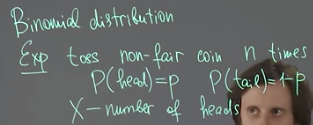 Binomial distribution
Exp toss non-fair coin n times
P(head)=p P(tail)=1-p
X-number of heads